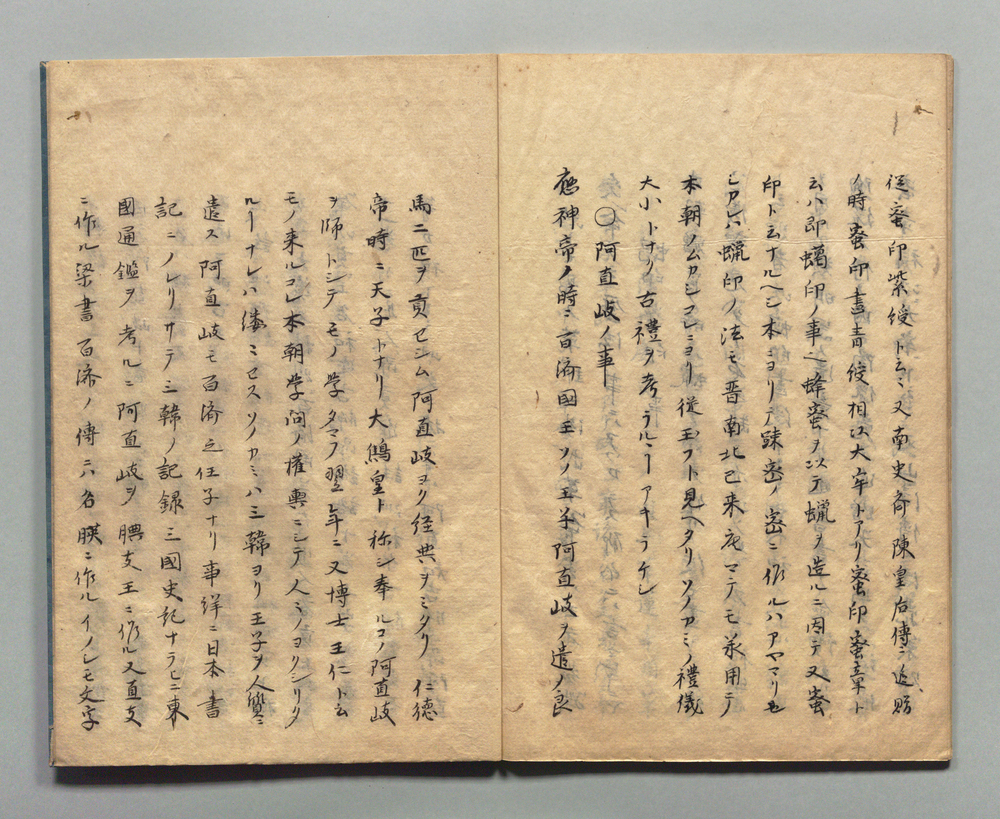 從蜜印紫綬ト云々又南史斉陳皇后傳ニ追贈
ノ時蜜印畫青綬相江大牢トアリ蜜印蜜章ト
云ハ即蠟印ノ事ヘ蜂蜜ヲ以テ蠟ヲ造ルニ因テ又蜜
印ト云ナルヘシ本ヨリノ踈密ノ密ニ作ルハアヤマリ也
シアレハ蠟印ノ法モ晋南北已来尼マテモ承用ニテ
本朝ノムカシコレニヨリ從玉フト見ヘタリソノカミノ禮儀
大小トナク古禮ヲ考ラルヿアキラケシ
〇阿直岐ノ事
應神帝ノ時ニ百済國王ソノ王子阿直岐ヲ遣ノ良
馬二匹ヲ貢セシム阿直岐ヨク経典ヲミタリ 仁徳
帝時ニ天子トナリ大鷦皇ト称シ奉ルコノ阿直岐
ヲ師トシテモノ学タマフ翌年ニ又博士王仁ト云
モノ来ルコレ本朝学问ノ權輿ニシテ人ミノヨクシリタ
ルヿナレハ縷ミセスソノカミハ三韓ヨリ王子ヲ人質ニ
遣ス阿直岐モ百済之任子ナリ事詳ニ日本書
記ニノレリサテ三韓ノ記録三國史記ナラヒニ東
國通鑑ヲ考ルニ阿直岐ヲ腆支王ニ作ル又直支
ニ作ル梁書百済ノ傳ニハ名腆ニ作ルイノレモ文字